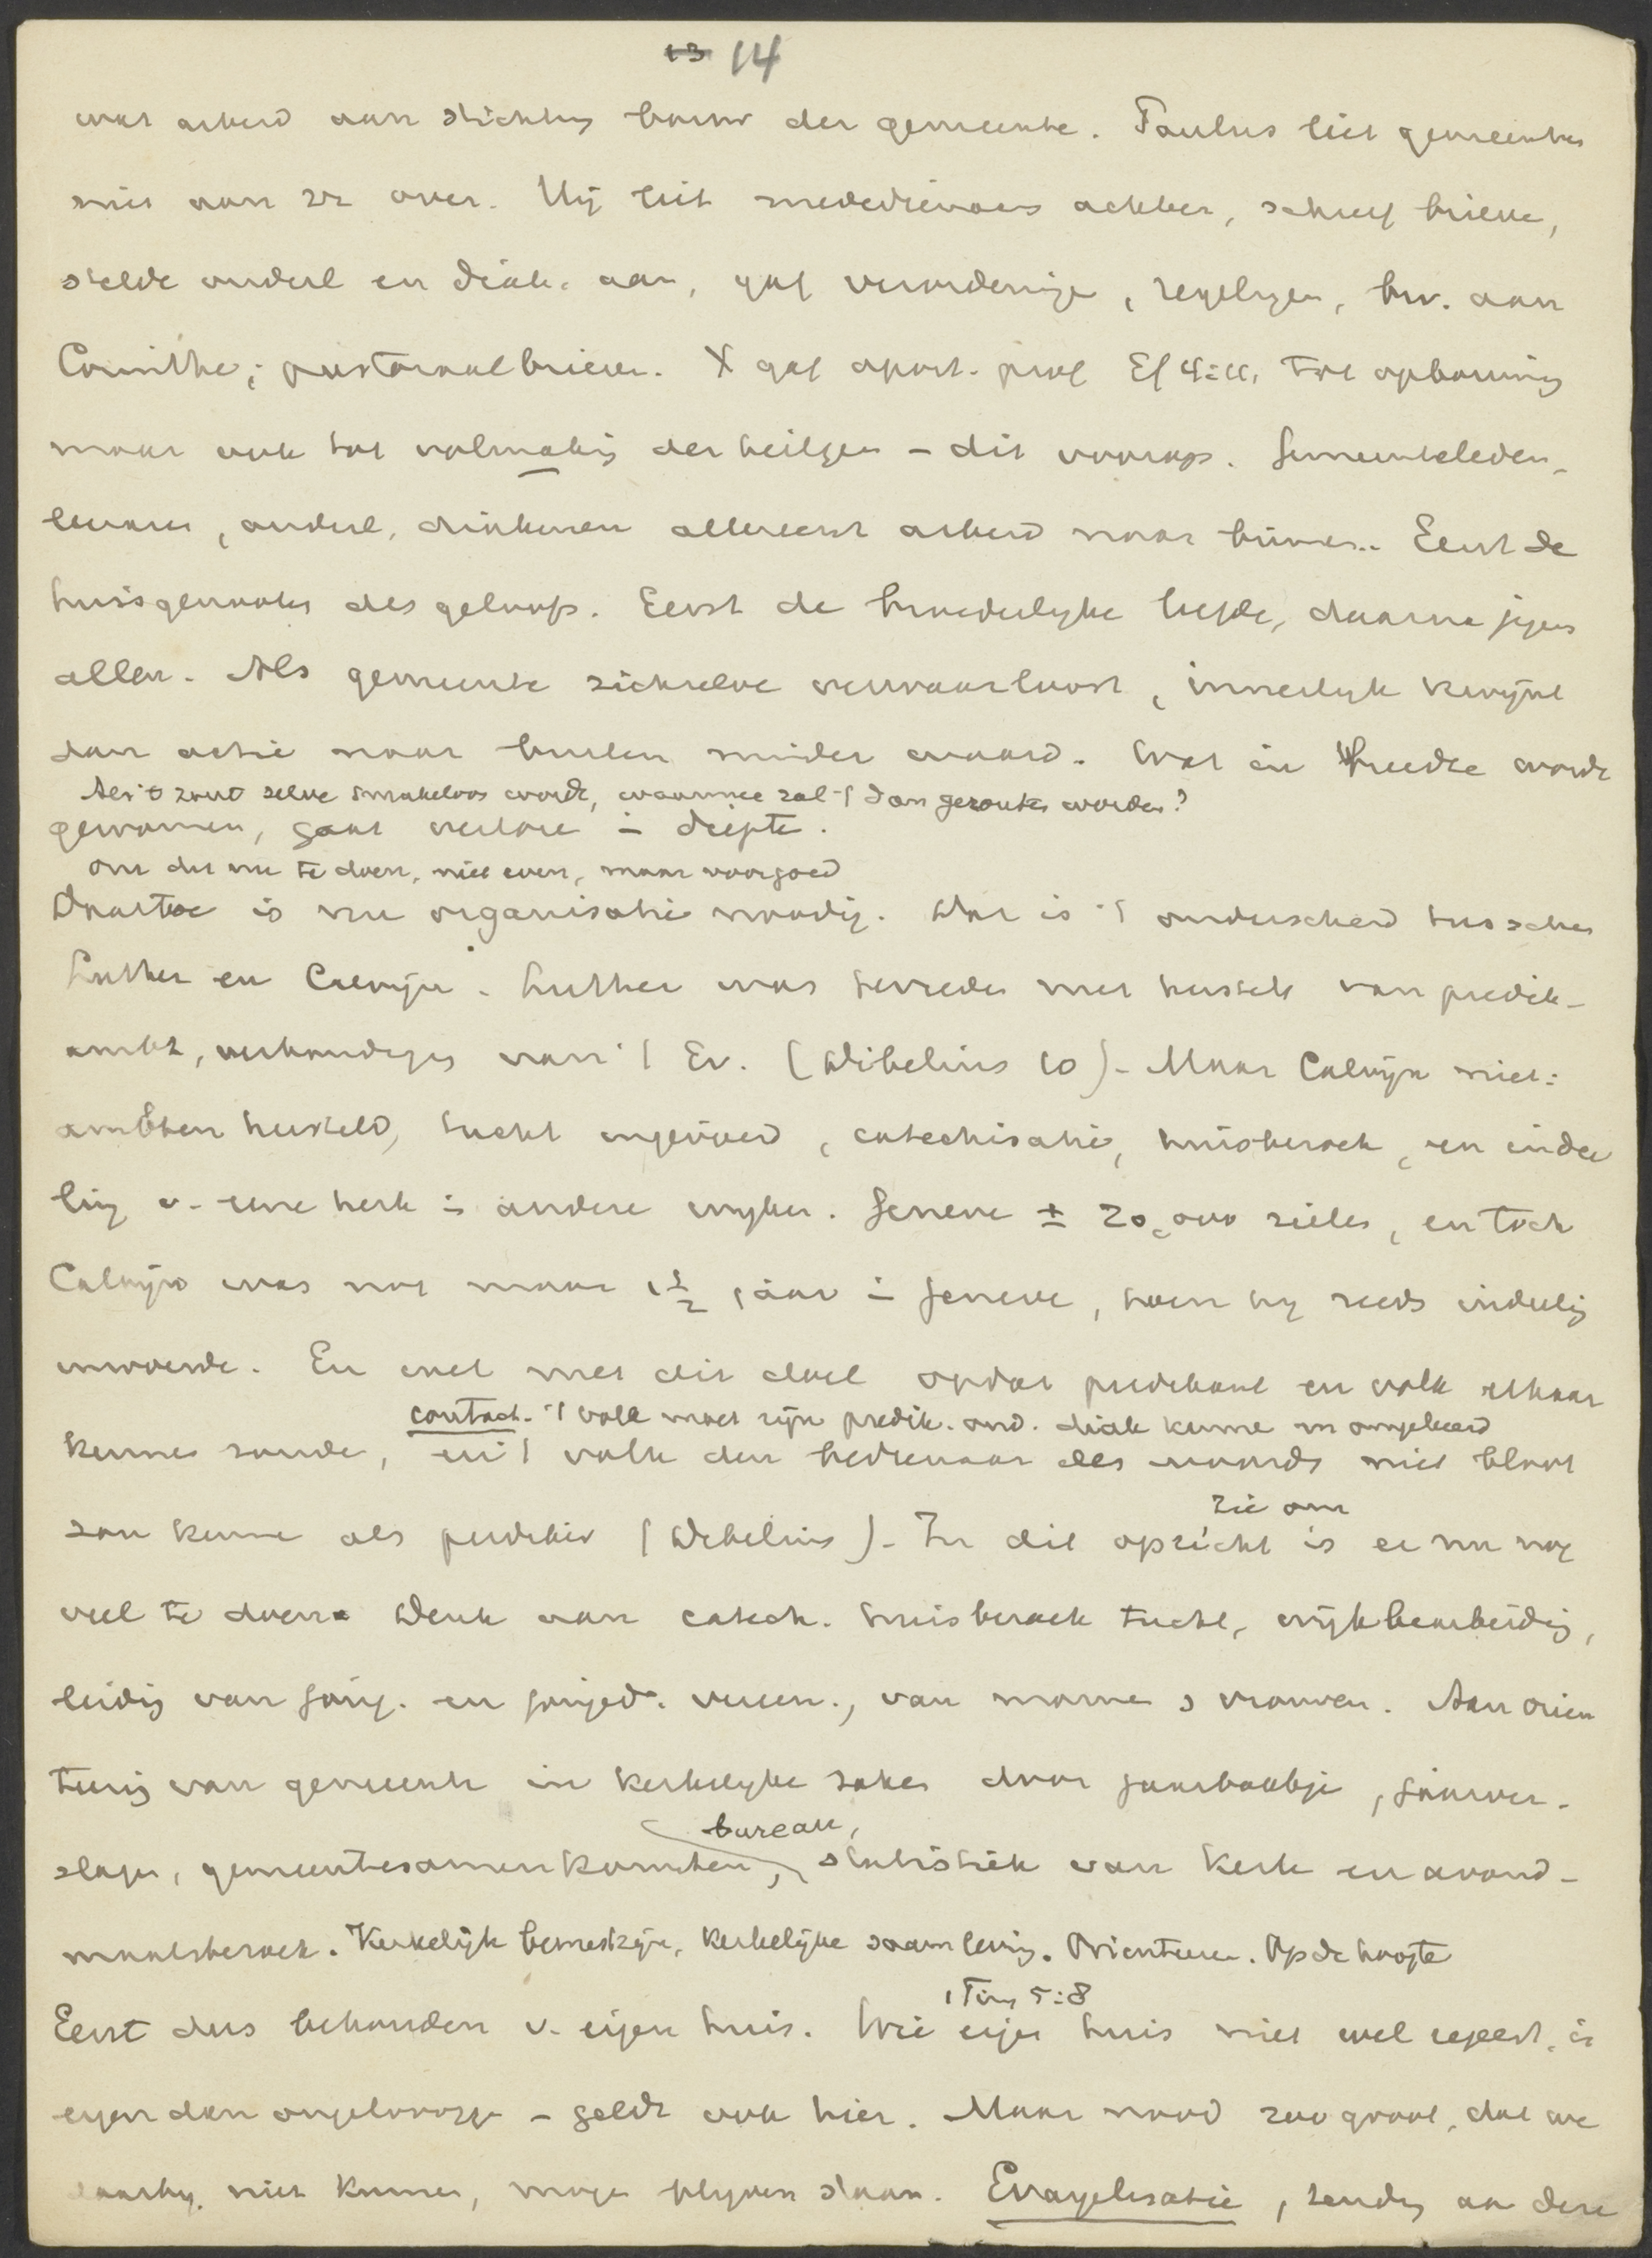 13 14
was arbeid aan stichting bouw der gemeente. Paulus liet gemeentes
niet aan zz over. Hij liet mededienaars achter, schreef brieve,
stelde ouderl en diak. aan, gaf verordeninge, regelingen, bv. aan
Corinthe; pastoraal brieven. X gaf apost. prof Ef 4:11, tot opbouwing
maar ook tot volmaking der heiligen - dit voorop. Gemeenteleden,
leeraars, ouderl, diakenen allereerst arbeid naar binnen. Eerst de
huisgenooten des geloofs. Eerst de broederlyke liefde, daarna jegens
allen. Als gemeente zichzelve verwaarloost, innerlyk kwijnt
dan actie naar buiten minder waard. Wat in breedte wordt
Als 't zout zelve smakeloos wordt, waarmee zal 't dan gezouten worden?
gewonnen, gaat verlore in diepte.
Om dit nu te doen, niet even, maar voorgoed
Daartoe is nu organisatie noodig. Dat is 't onderscheid tusschen
Luther en Calvijn. Luther was tevreden met herstel van predik-
ambt, verkondiging van 't Ev. (Wibelius 10) - Maar Calvijn niet:
ambten hersteld, tucht ingevoerd, catechisatie, huisbezoek, en indee
ling v. eene kerk in andere wyken. Geneve ± 20,000 zielen, en toch
Calvijn was nog maar 1½ jaar in Geneve, toen hy reeds indeeling
invoerde. En wel met dit doel opdat predikant en volk elkaar
contact. 't volk moet zijn predik. oud. diak kenne en omgekeerd
kennen zoude, en 't volk den bedienaar des woords niet bloot
zou kenne als prediker (Wibelius) - In dit opzicht is er nu nog
zie om
veel te doen. Denk aan catech. huisbezoek tucht, wijkbearbeiding,
leiding van jong. en jonged. vereen., van manne & vrouwen. Aan orien
teering van gemeente in kerkelyke zaken door jaarboekje, jaarver-
bureau,
slagen, gemeentesamenkomsten, statistiek van kerk en avond-
maalsbezoek. Kerkelijk bewustzijn, kerkelijke saamleving. Orienteeren. Op de hoogte
1 Tim 5:8
Eerst dus behouden v. eigen huis. Wie eigen huis niet wel regeert, is
erger dan ongeloovige - geldt ook hier. Maar nood zoo groot, dat we
daarby niet kunnen, mogen blyven staan. Evangelisatie, zending an dere